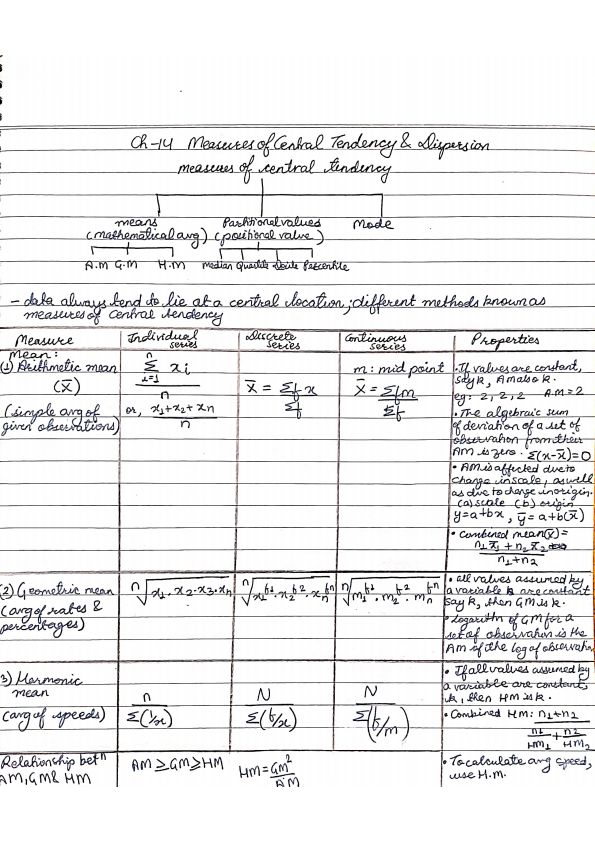 Ch-14 Measures of Central Tendency & Dispersion
measures of central tendency
means
(mathematical avg)
Partitional values
(positional value)
Mode
A.M G.M H.M
Median Quartile Decile Percentile
- data always tend to lie at a central location; different methods known as
measures of central tendency
Measure
Individual series
Discrete series
Continuous series
Properties
Mean:
(1) Arithmetic mean
(X̄)
(simple avg of
given observations)
n Σ i=1 xi / n
or, x1+x2+xn / n
X̄ = Σf x / Σf
m: mid point
X̄ = Σfm / Σf
• If values are constant,
say k, AM also k.
eg: 2, 2, 2 A.M = 2
• The algebraic sum
of deviation of a set of
observation from their
AM is zero. Σ(x-x̄)=0
• AM is affected due to
change in scale, as well
as due to change in origin.
(a) scale (b) origin
y=a+bx, ȳ=a+b(x̄)
• Combined mean(x̄)=
n1x̄1 + n2x̄2 / n1+n2
(2) Geometric mean
(avg of rates &
percentages)
n√x1.x2.x3.xn
n√x1^f1.x2^f2.xn^fn
n√m1^f1.m2^f2.mn^fn
• all values assumed by
a variable are constant
say k, then GM is k.
• Logarithm of GM for a
set of observation is the
AM of the log of observation
3) Harmonic
mean
(avg of speeds)
n / Σ(1/x)
N / Σ(f/x)
N / Σ(f/m)
• If all values assumed by
a variable are constant,
k, then HM is k.
• Combined HM: n1+n2 / n1/HM1 + n2/HM2
Relationship betn
AM, GM & HM
AM ≥ GM ≥ HM
HM = GM² / AM
• To calculate avg speed,
use H.M.